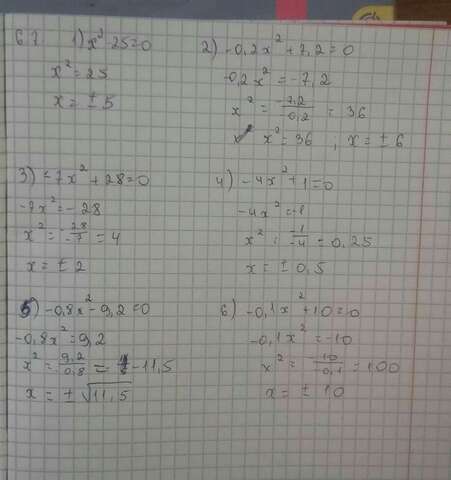 67 1) x² - 25 = 0
x² = 25
x = ± 5
2) -0,2x² + 7,2 = 0
-0,2x² = -7,2
x² = -7,2/-0,2 = 36
x² = 36 ; x = ± 6
3) -7x² + 28 = 0
-7x² = -28
x² = -28/-7 = 4
x = ± 2
4) -4x² + 1 = 0
-4x² = -1
x² = -1/-4 = 0,25
x = ± 0,5
5) -0,8x² - 9,2 = 0
-0,8x² = 9,2
x² = 9,2/-0,8 = -11,5
x = ± √11,5
6) -0,1x² + 10 = 0
-0,1x² = -10
x² = -10/-0,1 = 100
x = ± 10